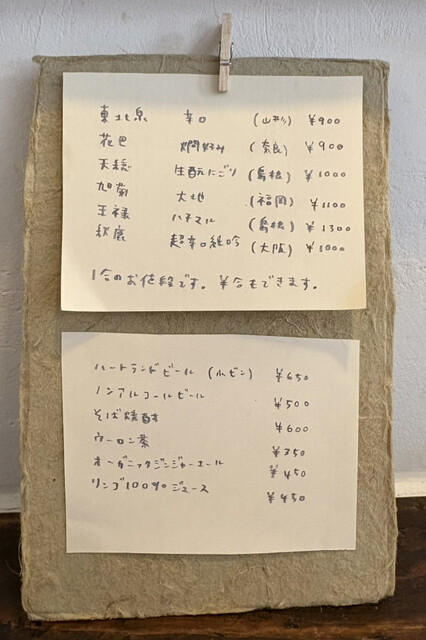 東北泉 辛口 (山形) ¥900
花巴 燗好み (奈良) ¥900
天穏 生酛にごり (島根) ¥1000
旭菊 大地 (福岡) ¥1100
王禄 ハチマル (島根) ¥1300
秋鹿 超辛口純吟 (大阪) ¥1000
1合のお値段です。半合もできます。
ハートランドビール (小ビン) ¥650
ノンアルコールビール ¥500
そば焼酎 ¥600
ウーロン茶 ¥350
オーガニックジンジャーエール ¥450
リンゴ100%ジュース ¥450